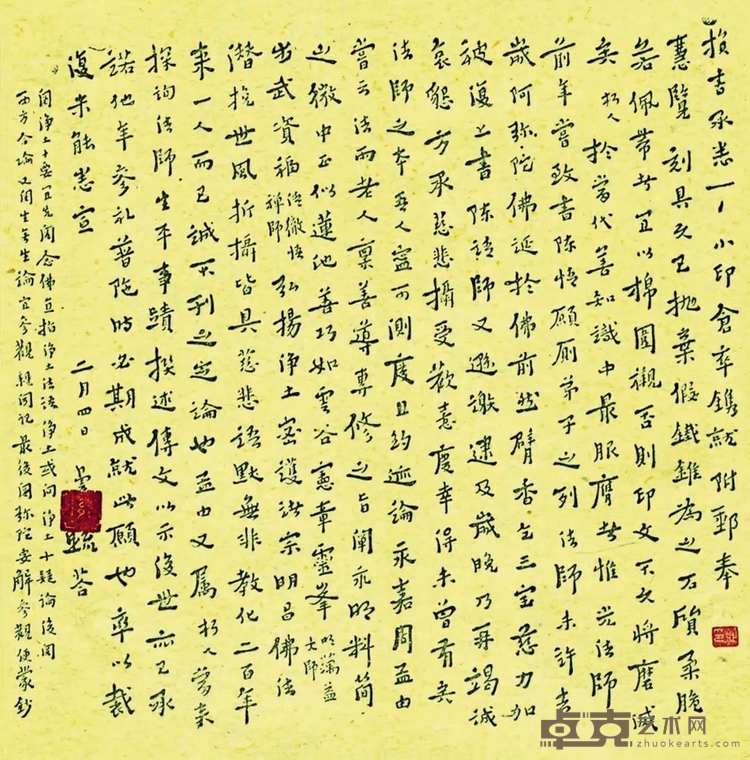 損書承悉一一小印倉卒鐫就附郵奉
慧覽刻具久已拋棄假鐵錐為之石質柔脆
若佩帶者宜以棉圍襯否則印文不久將磨滅
矣朽人於當代善知識中最服膺者惟光法師
前年嘗致書陳情願廁弟子之列法師未許去
歲阿彌陀佛誕於佛前然臂香乞三寶慈力加
被復上書陳請師又遜謝逮及歲晚乃再竭誠
哀懇方承慈悲攝受歡喜慶幸得未曾有矣
法師之本吾人寧可測度且約迹論永嘉周孟由
嘗云法雨老人稟善導專修之旨闡永明料簡
之微中正似蓮池善巧如雲谷憲章靈峯明蕅益大師
步武資福清徹悟禪師弘揚淨土密護諸宗明昌佛法
潛挽世風折攝皆具慈悲語默無非教化二百年
來一人而已誠不刊之定論也孟由又屬朽人當來
探詢法師生平事蹟撰述傳文以示後世亦已承
諾他年參禮普陀時必期成就此願也率以裁
復未能悉宣
二月四日 曇昉疏答
閱淨土十要宜先閱念佛直指淨土法語淨土或問淨土十疑論後閱
西方合論又閱生無生論宜參觀親聞記最後閱彌陀要解參觀便蒙鈔
卓克艺术网
zhuokearts.com